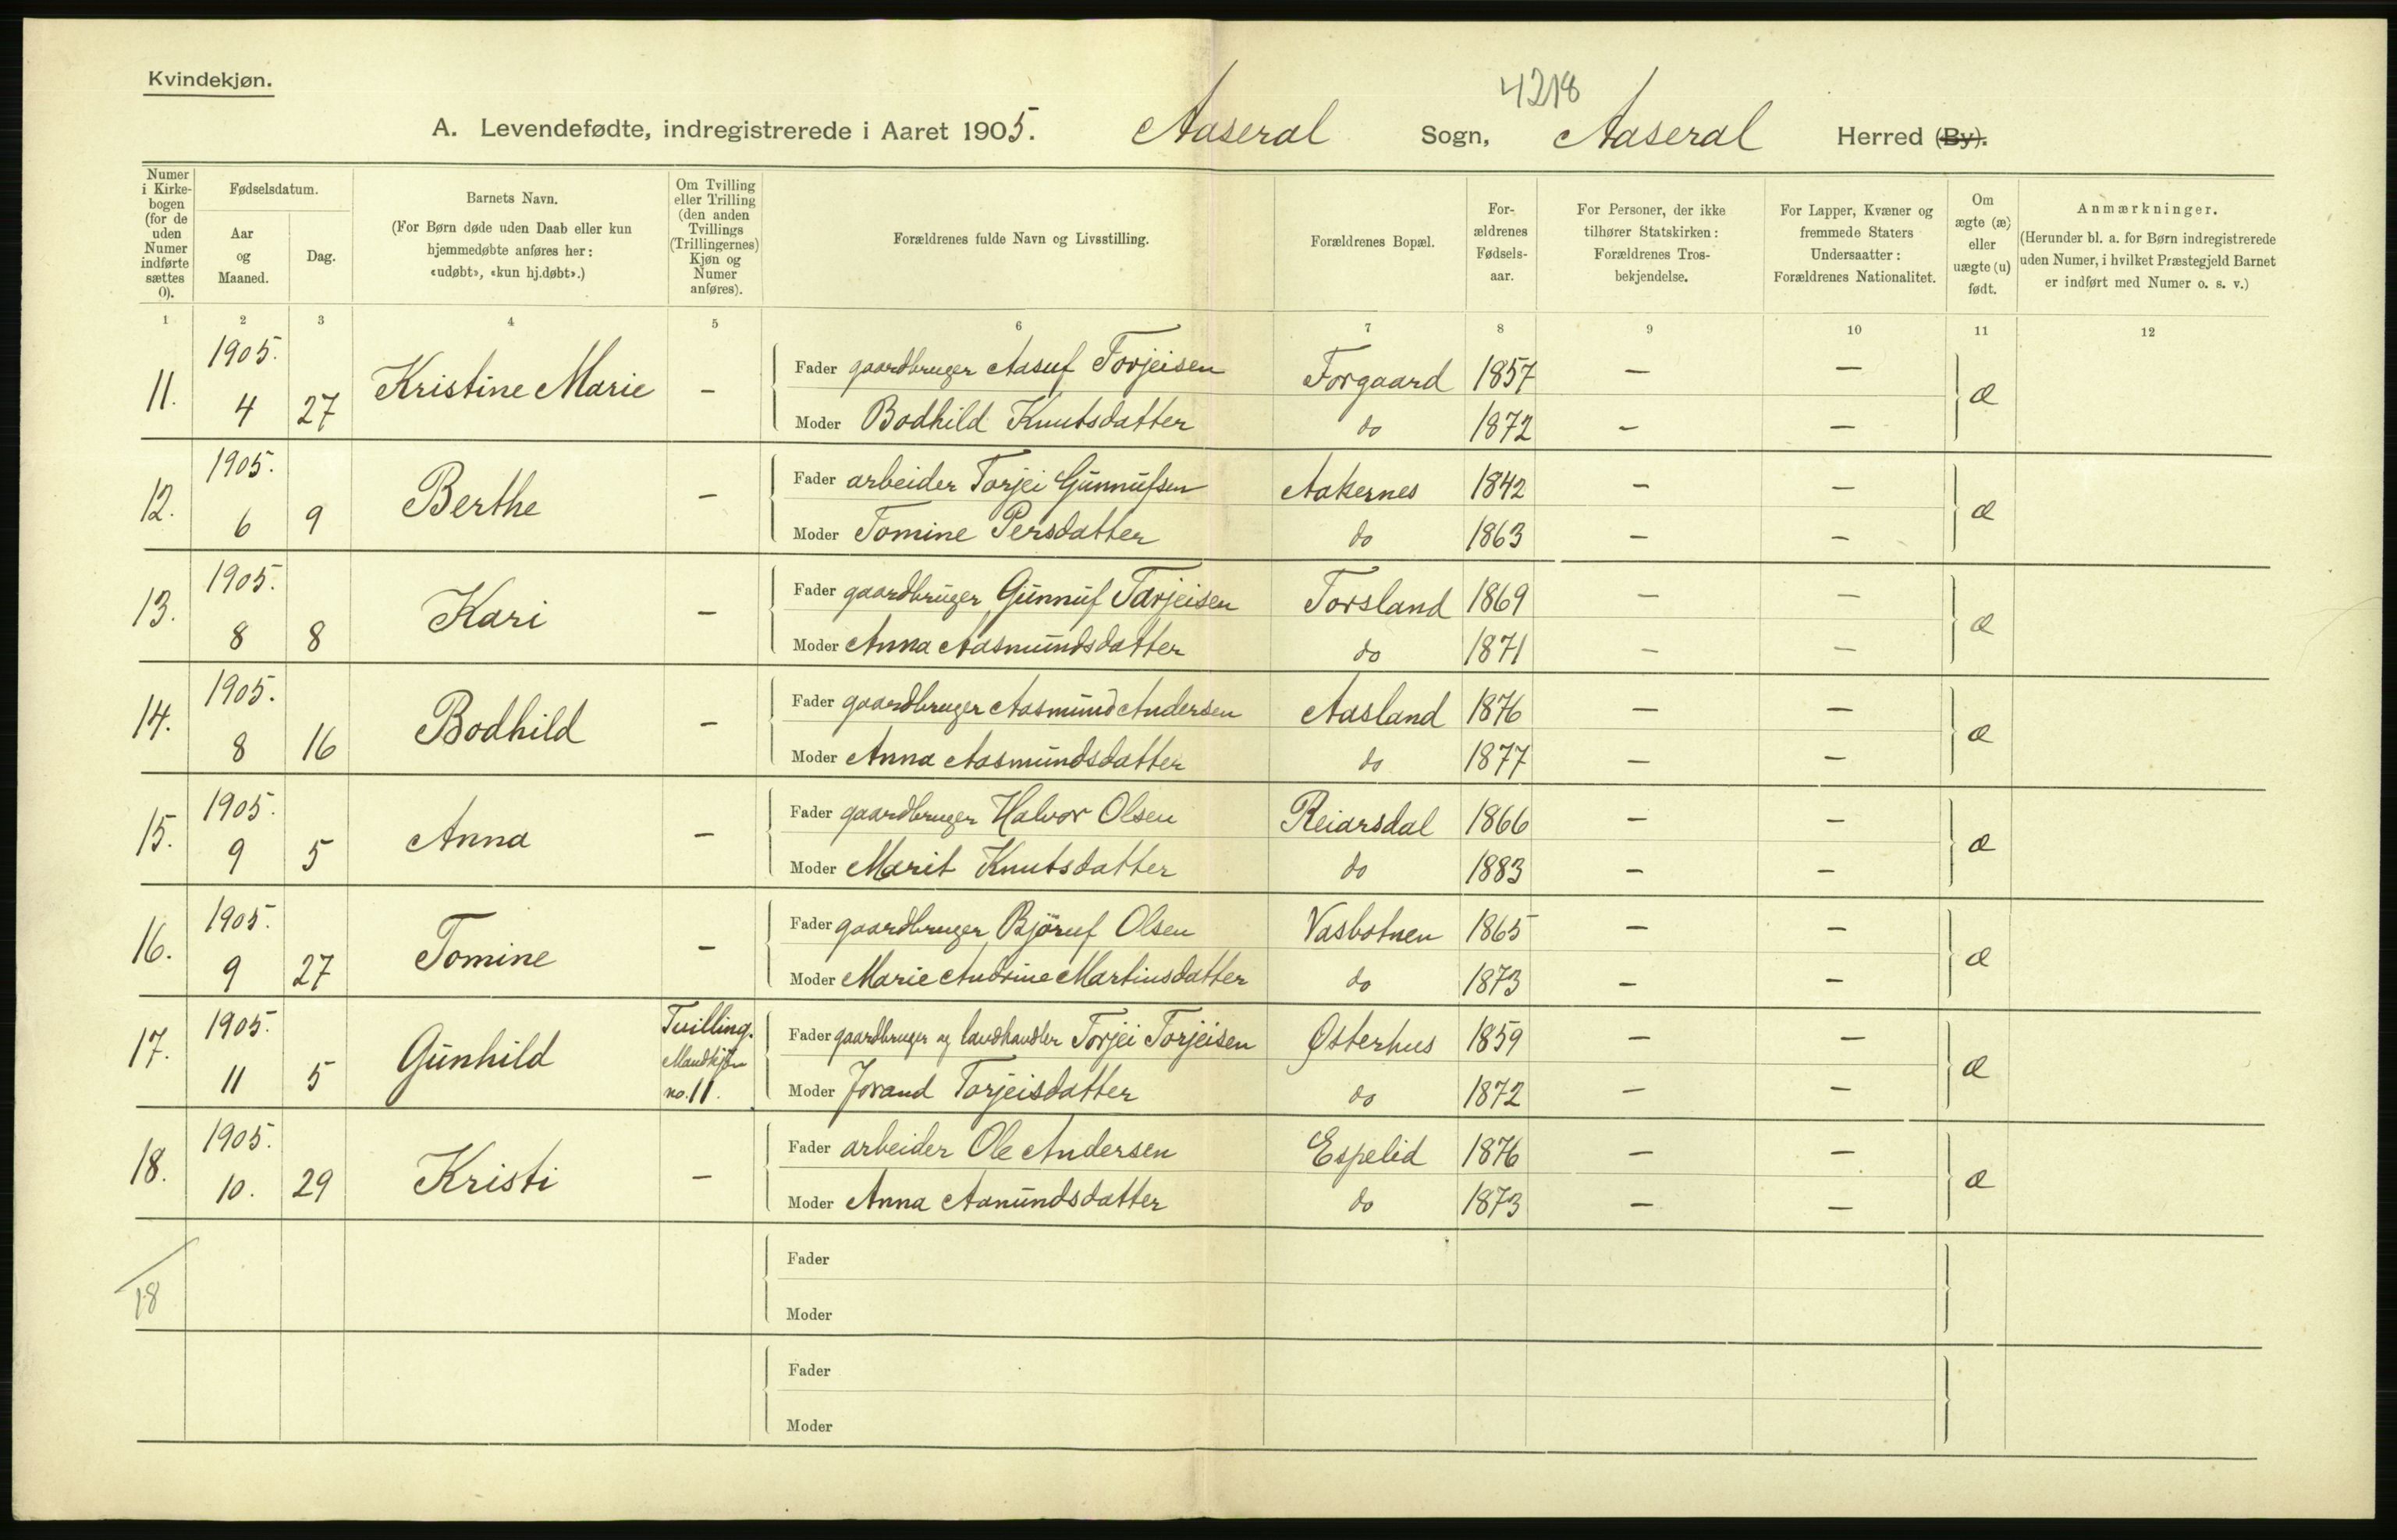 Kvindekjøn.
4218
A. Levendefødte, indregistrerede i Aaret 1905. Aaseral Sogn, Aaseral Herred (By).
Numer i Kirkebogen (for de uden Numer indførte sættes 0).
Fødselsdatum.
Aar og Maaned.
Dag.
Barnets Navn.
(For Børn døde uden Daab eller kun hjemmedøbte anføres her: «udøbt», «kun hj.døbt».)
Om Tvilling eller Trilling (den anden Tvillings (Trillingernes) Kjøn og Numer anføres).
Forældrenes fulde Navn og Livsstilling.
Forældrenes Bopæl.
Forældrenes Fødselsaar.
For Personer, der ikke tilhører Statskirken: Forældrenes Trosbekjendelse.
For Lapper, Kvæner og fremmede Staters Undersaatter: Forældrenes Nationalitet.
Om ægte (æ) eller uægte (u) født.
Anmærkninger.
(Herunder bl. a. for Børn indregistrerede uden Numer, i hvilket Præstegjeld Barnet er indført med Numer o. s. v.)
1 2 3 4 5 6 7 8 9 10 11 12
11. 1905. 4 27 Kristine Marie – Fader gaardbruger Aasuf Torjeisen Forgaard 1857 – – æ
Moder Bodhild Knutsdatter do 1872 – –
12. 1905. 6 9 Berthe – Fader arbeider Torjei Gunnufsen Aakernes 1842 – – æ
Moder Tomine Persdatter do 1863 – –
13. 1905. 8 8 Kari – Fader gaardbruger Gunnuf Tarjeisen Torsland 1869 – – æ
Moder Anna Aasmundsdatter do 1871 – –
14. 1905. 8 16 Bodhild – Fader gaardbruger Aasmund Andersen Aasland 1876 – – æ
Moder Anna Aasmundsdatter do 1877 – –
15. 1905. 9 5 Anna – Fader gaardbruger Halvor Olsen Reiarsdal 1866 – – æ
Moder Marit Knutsdatter do 1883 – –
16. 1905. 9 27 Tomine – Fader gaardbruger Björuf Olsen Vasbotnen 1865 – – æ
Moder Marie Andrine Martinsdatter do 1873 – –
17. 1905. 11 5 Gunhild Tvilling. Mandkjøn no. 11. Fader gaardbruger og landhandler Torjei Torjeisen Østerhus 1859 – – æ
Moder Jorand Tarjeisdatter do 1872 – –
18. 1905. 10. 29 Kristi – Fader arbeider Ole Andersen Espelid 1876 – – æ
Moder Anna Aanundsdatter do 1873 – –
18
Fader
Moder
Fader
Moder